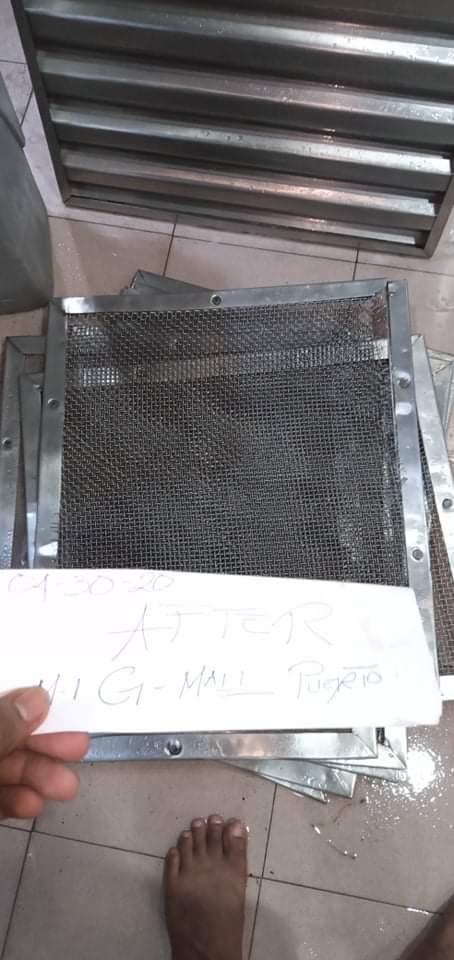 04-30-20
AFTER
M.I G-MALL PUERTO